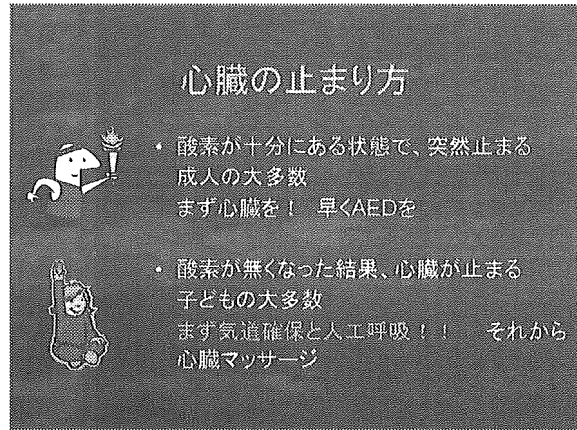 心臓の止まり方
・ 酸素が十分にある状態で、突然止まる
成人の大多数
まず心臓を！ 早くAEDを
・ 酸素が無くなった結果、心臓が止まる
子どもの大多数
まず気道確保と人工呼吸！！ それから
心臓マッサージ